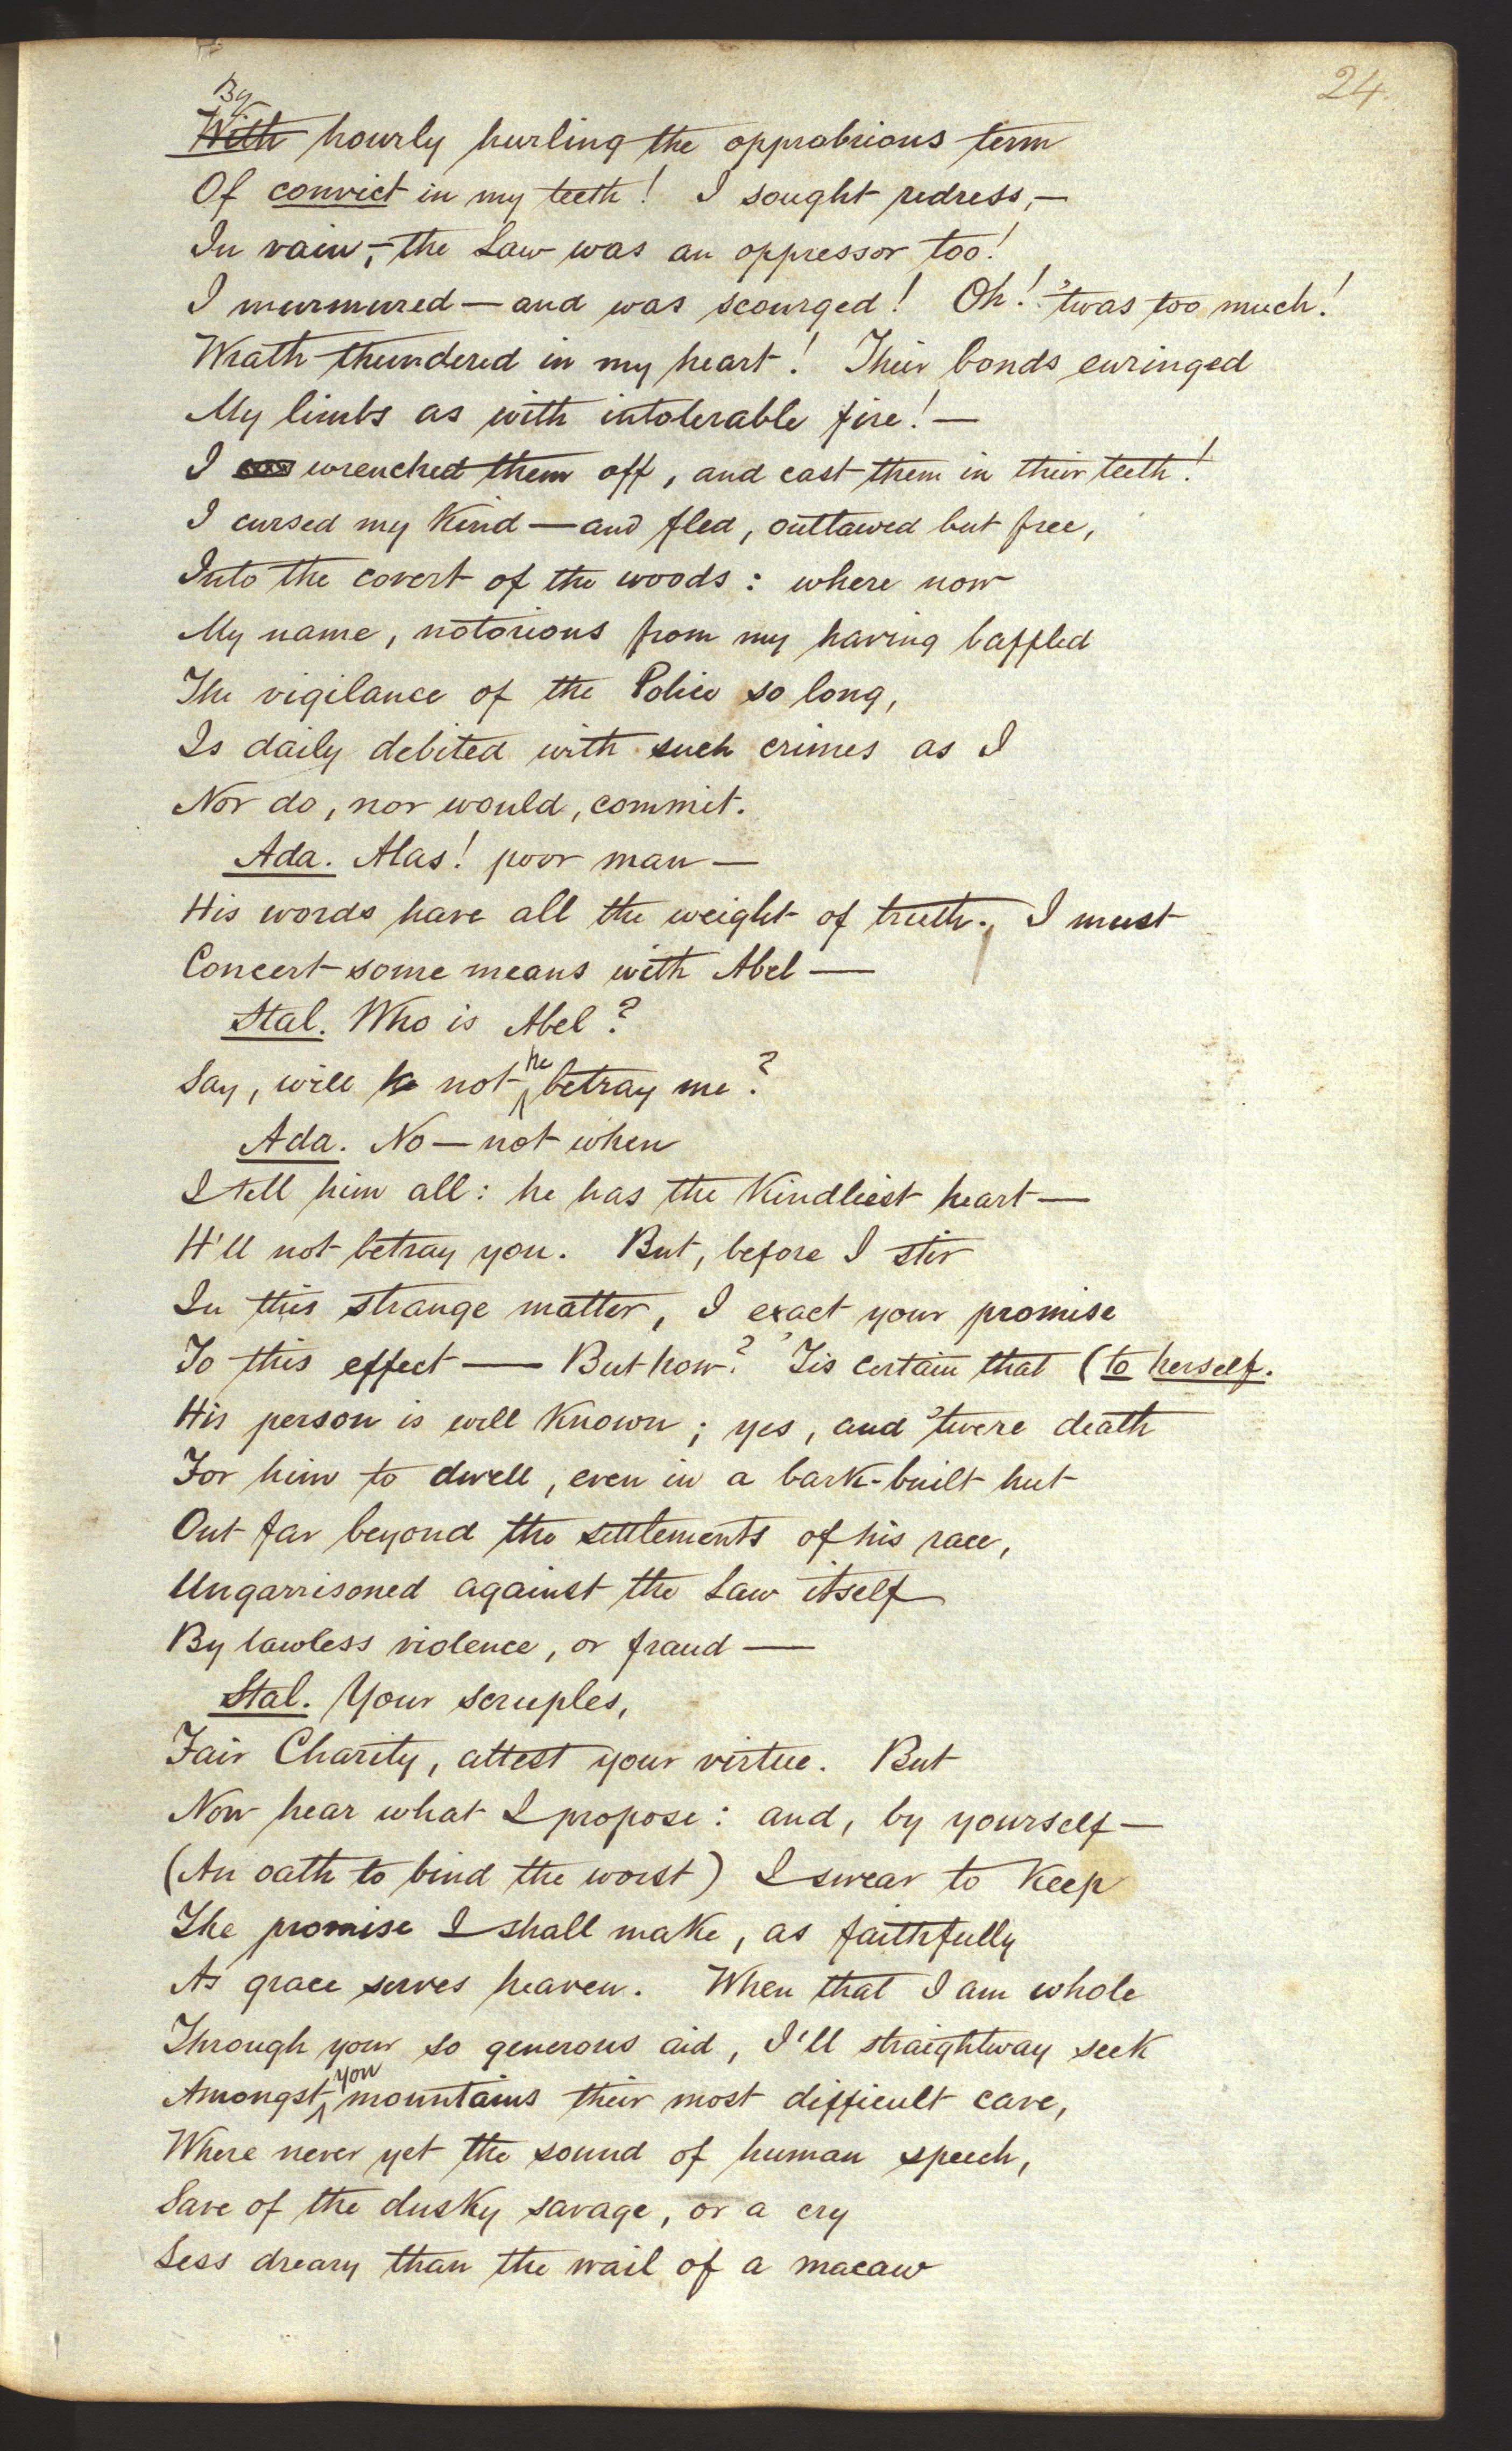 24
By
With hourly hurling the opprobrious term
Of convict in my teeth! I sought redress,—
In vain,—the Law was an oppressor too!
I murmured—and was scourged! Oh! 'twas too much!
Wrath thundered in my heart! Their bonds enringed
My limbs as with intolerable fire!—
I wrenched them off, and cast them in their teeth!
I cursed my Kind—and fled, outlawed but free,
Into the covert of the woods: where now
My name, notorious from my having baffled
The vigilance of the Police so long,
Is daily debited with such crimes as I
Nor do, nor would, commit.
Ada. Alas! poor man—
His words have all the weight of truth. I must
Concert some means with Abel—
Stal. Who is Abel?
Say, will he not he betray me?
Ada. No—not when
I tell him all: he has the Kindliest heart—
H'll not betray you. But, before I stir
In this strange matter, I exact your promise
To this effect— But how? 'Tis certain that (to herself.
His person is well Known; yes, and 'twere death
For him to dwell, even in a bark-built hut
Out far beyond the settlements of his race,
Ungarrisoned against the Law itself
By lawless violence, or fraud—
Stal. Your scruples,
Fair Charity, attest your virtue. But
Now hear what I propose: and, by yourself—
(An oath to bind the worst) I swear to Keep
The promise I shall make, as faithfully
As grace serves heaven. When that I am whole
Through your so generous aid, I'll straightway seek
Amongst yon mountains their most difficult cave,
Where never yet the sound of human speech,
Save of the dusky savage, or a cry
Less dreary than the wail of a macaw